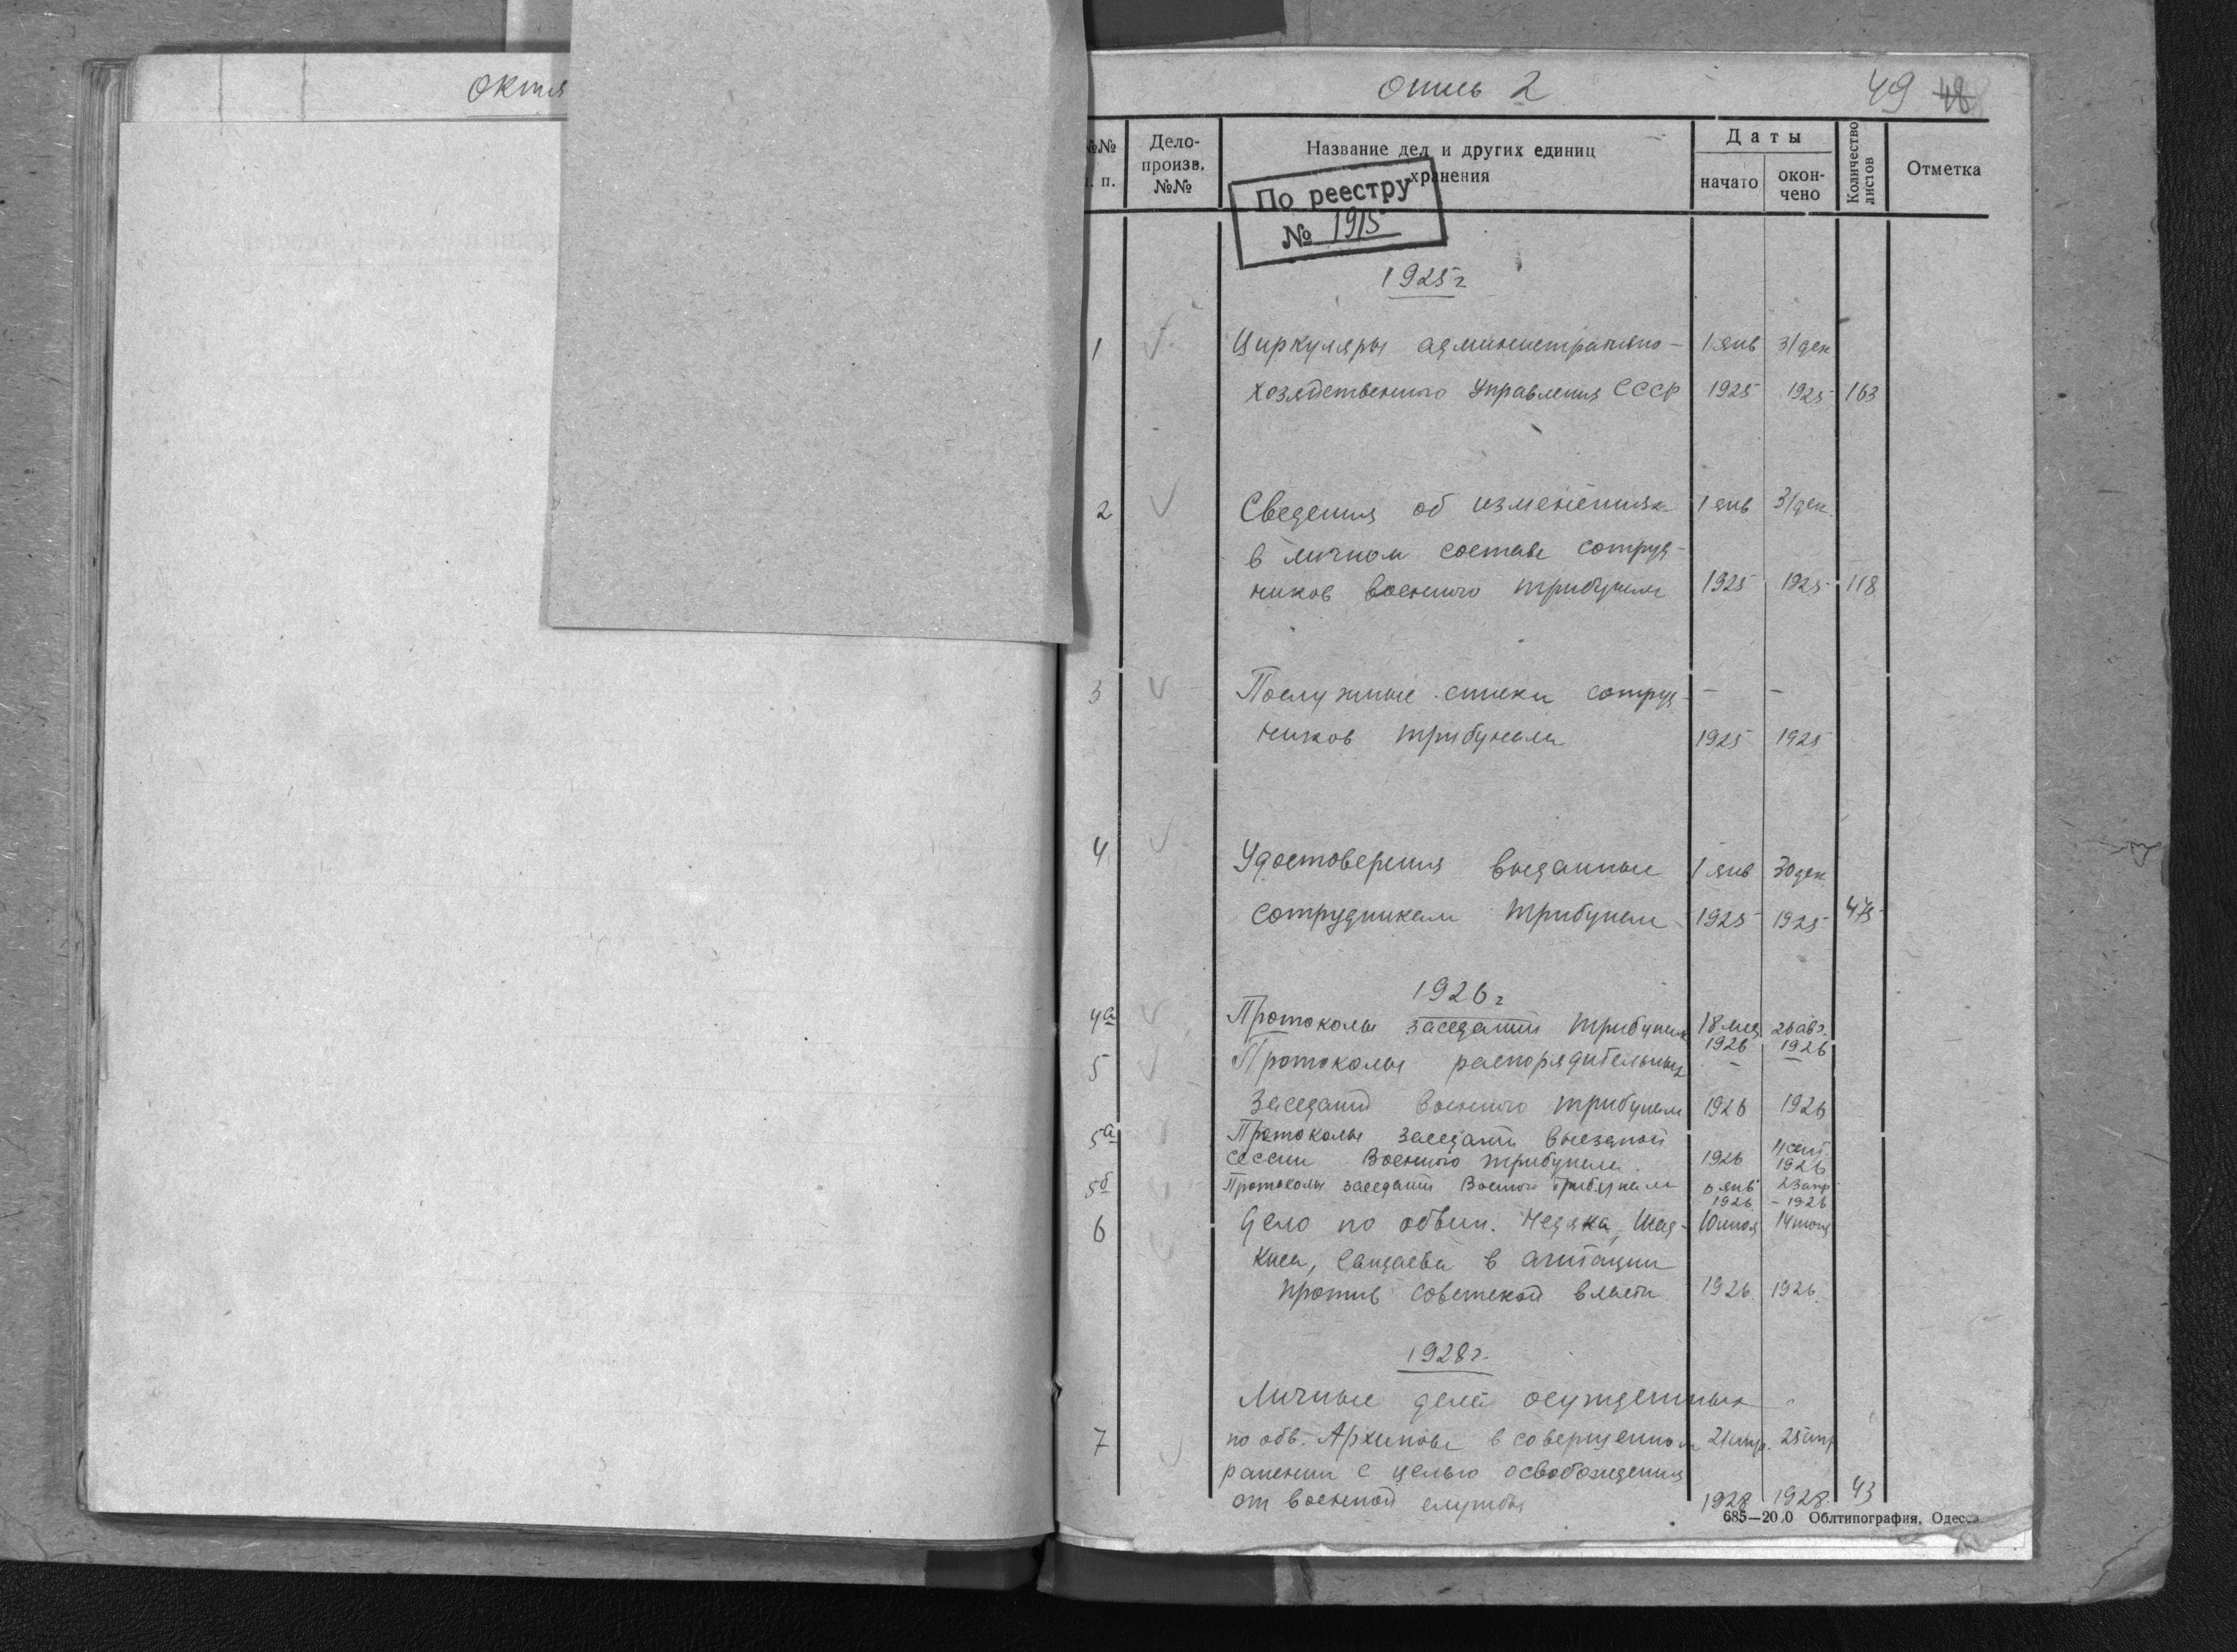 Октя
опись 2
49 48
№№ п. п.
Дело-произв. №№
Название дел и других единиц хранения
Даты
начато
окончено
Количество листов
Отметка
По реестру
№ 1915
1925 г
1 Циркуляры административно- 1 янв 31 дек
хозяйственного Управления СССР 1925 1925 163
2 Сведения об изменениях 1 янв 31 дек.
в личном составе сотруд-
ников военного трибунала 1925 1925 118
3 Послужные списки сотруд- - -
ников трибунала 1925 1925
4 Удостоверения выданные 1 янв 30 дек.
сотрудникам трибунала 1925 1925 475
1926 г
4а Протоколы заседаний трибунала 18 26 авг.
1926 1926
5 Протоколы распорядительных - -
заседаний военного трибунала 1926 1926
5а Протоколы заседаний выездной 4 сент.
сессии Военного трибунала. 1926 1926
5б Протоколы заседаний Военного трибунала янв 23 апр
1926 - 1926
6 Дело по обвин. 10 июля 14 июля
в агитации
против советской власти 1926. 1926.
1928 г.
Личные дела осужденных -
7 по обв. Архипова в совершении 21 апр. 25 апр
ранении с целью освобождения
от военной службы 1928 1928. 43
685—20.0 Облтипография, Одесса